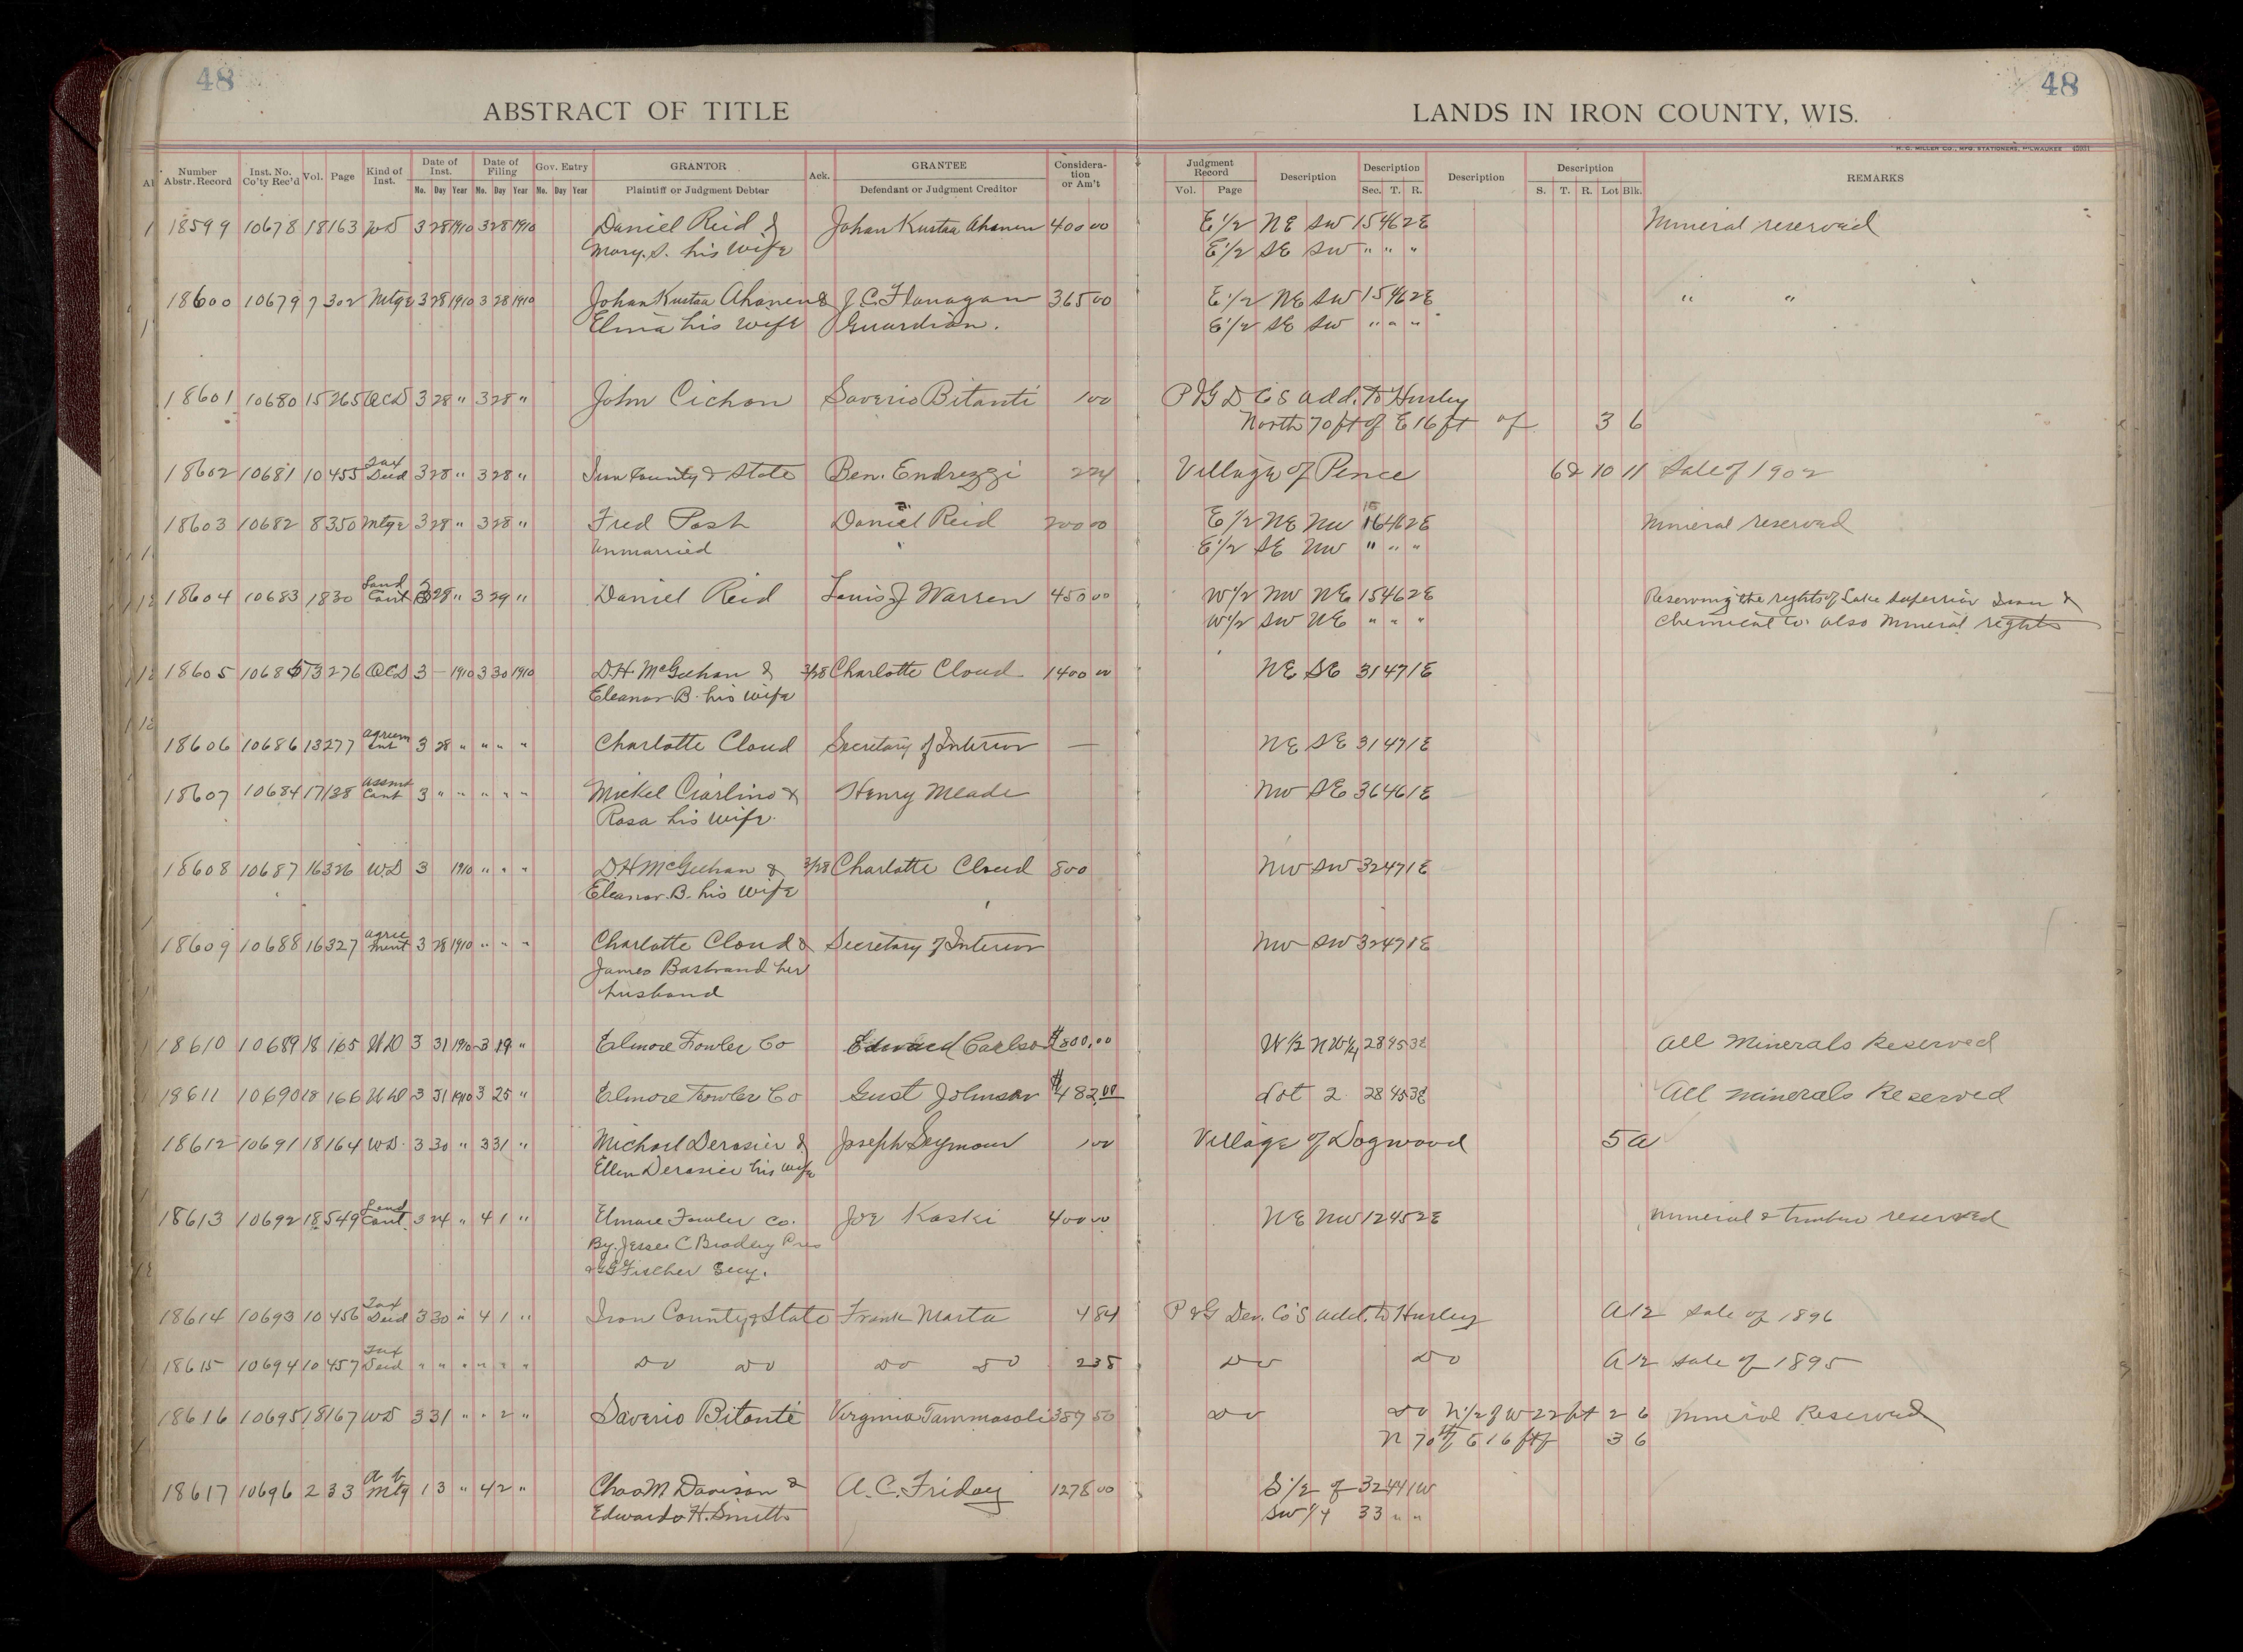 48
48
ABSTRACT OF TITLE
LANDS IN IRON COUNTY, WIS.
H. C. MILLER CO., MFG. STATIONERS, MILWAUKEE
Number Abstr. Record | Inst. No. Co'ty Rec'd | Vol. | Page | Kind of Inst. | Date of Inst. Mo. Day Year | Date of Filing Mo. Day Year | Gov. Entry Mo. Day Year | GRANTOR Plaintiff or Judgment Debtor | Ack. | GRANTEE Defendant or Judgment Creditor | Considera-tion or Am't | Judgment Record Vol. Page | Description | Description Sec. T. R. | Description | Description S. T. R. Lot Blk. | REMARKS
18599 10678 18 163 WD 3 28 1910 3 28 1910 Daniel Reid & Johan Kustaa Ahonen 400 00 E 1/2 NE SW 15 46 2E Mineral reserved
Mary. S. his wife E 1/2 SE SW " " "
18600 10679 7 302 Mtge 3 28 1910 3 28 1910 Johan Kustaa Ahonen & J. C. Flanagan 365 00 E 1/2 NE SW 15 46 2E " "
Elma his wife Guardian. E 1/2 SE SW " " "
18601 10680 15 265 QCD 3 28 " 3 28 " John Cichon Saverio Bitonti 1 00 P & G D Co's add. to Hurley
North 70 ft of E 16 ft of 3 6
18602 10681 10 455 Tax Deed 3 28 " 3 28 " Iron County & State Ben. Endrezzi 2 24 Village of Pence 62 10 11 Sale of 1902
18603 10682 8 350 Mtge 3 28 " 3 28 " Fred Posh Daniel Reid 200 00 E 1/2 NE NW 46 2E Mineral reserved
Unmarried E 1/2 SE NW " " "
18604 10683 18 30 Land Cont 3 28 " 3 29 " Daniel Reid Louis J Warren 450 00 W 1/2 NW NE 15 46 2E Reserving the rights of Lake Superior Iron &
W 1/2 SW NE " " " Chemical Co also Mineral rights
18605 10685 13 276 QCD 3 — 1910 3 30 1910 D H McGeehan & 3/28 Charlotte Cloud 1400 00 NE SE 31 47 1E
Eleanor B. his wife
18606 10686 13 277 Agreement 3 28 " " " " Charlotte Cloud Secretary of Interior — NE SE 31 47 1E
18607 10684 17 138 Assmt Cont 3 " " " " " Michel Ciarlino & Henry Meade NW SE 36 46 1E
Rosa his wife.
18608 10687 16 326 W.D 3 1910 " " " D H McGeehan & 3/28 Charlotte Cloud 800 NW SW 32 47 1E
Eleanor. B. his wife
18609 10688 16 327 Agreement 3 28 1910 " " " Charlotte Cloud & Secretary of Interior NW SW 32 47 1E
James Bastrand her
husband
18610 10689 18 165 WD 3 31 1910 3 19 " Elmore Fowler Co Edward Carlson $800.00 W 1/2 NW 1/4 28 45 3E All Minerals Reserved
18611 10690 18 166 WD 3 31 1910 3 25 " Elmore Fowler Co Gust Johnson $482.00 Lot 2 28 45 3E All Minerals Reserved
18612 10691 18 164 WD. 3 30 " 3 31 " Michael Derosier & Joseph Seymour 1 00 Village of Dogwood 5 A
Ellen Derosier his wife
18613 10692 18 549 Land Cont. 3 24 " 4 1 " Elmore Fowler Co. Joe Koski 400 00 NE NW 12 45 2E Mineral & timber reserved
By. Jesse C Bradley Pres
& G G Fischer Secy.
18614 10693 10 456 Tax Deed 3 30 " 4 1 " Iron County & State Frank Marta 4 84 P & G Dev. Co's add. to Hurley A 12 Sale of 1896
18615 10694 10 457 Tax Deed " " " " " " Do Do Do Do 2 35 Do Do A 12 Sale of 1895
18616 10695 18 167 WD 3 31 " " 2 " Saverio Bitonte Virginia Tammasoli 387 50 Do Do N 1/2 of W 22 ft 2 6 Mineral Reserved
N 70 ft of E 16 ft of 3 6
18617 10696 2 33 Mtg 1 3 " 4 2 " Chas M Davison & A. C. Friday 1278 00 S 1/2 of 32 44 1W
Edwards H. Smith SW 1/4 33 " "